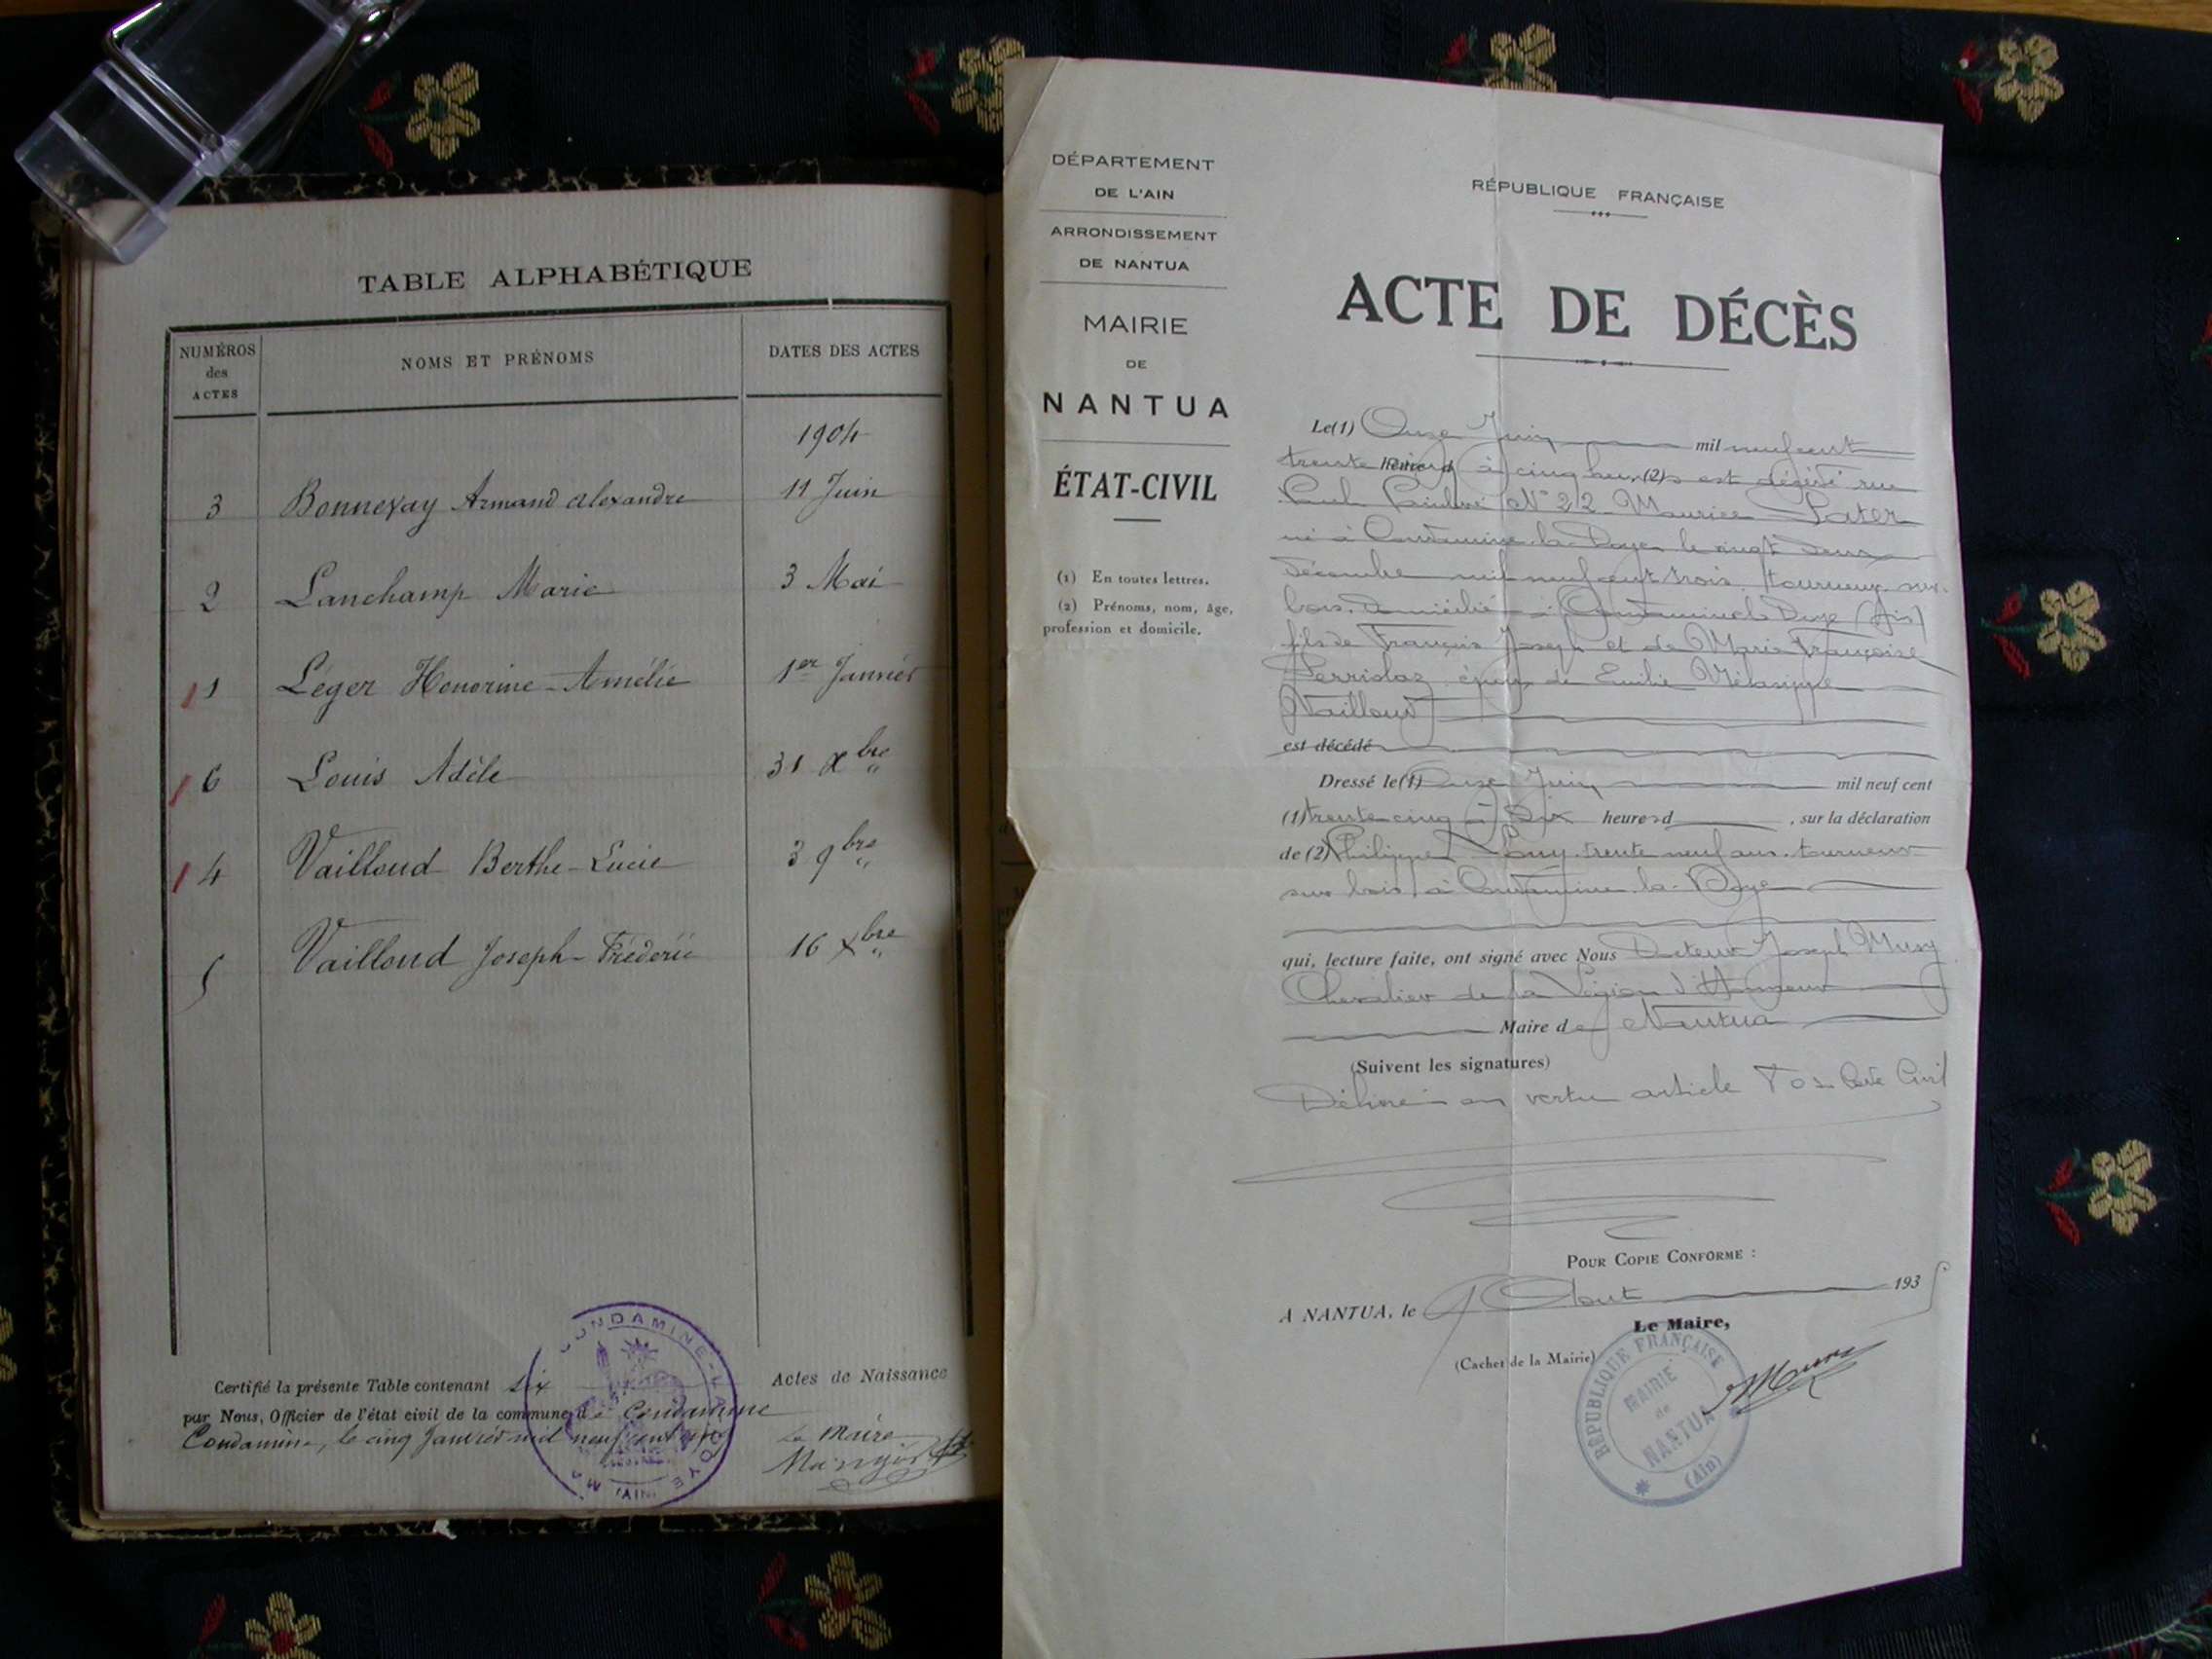 TABLE ALPHABÉTIQUE
NUMÉROS
des
ACTES
NOMS ET PRÉNOMS
DATES DES ACTES
1904
3 Bonnevay Armand Alexandre 11 Juin
2 Lanchamp Marie 3 Mai
1 Léger Honorine-Amélie 1er Janvier
6 Louis Adèle 31 Xbre
4 Vailloud Berthe-Lucie 3 9bre
5 Vailloud Joseph-Fréderic 16 Xbre
Certifié la présente Table contenant six Actes de Naissance
par Nous, Officier de l'état civil de la commune de Condamine
Condamine, le cinq Janvier mil neuf cent
Le Maire
CONDAMINE-LA-DOYE
(AIN)
DÉPARTEMENT
DE L'AIN
ARRONDISSEMENT
DE NANTUA
MAIRIE
DE
NANTUA
ÉTAT-CIVIL
(1) En toutes lettres.
(2) Prénoms, nom, âge,
profession et domicile.
RÉPUBLIQUE FRANÇAISE
ACTE DE DÉCÈS
Le (1) Onze Juin mil neuf cent
trente cinq à cinq heures (2) est décédé rue
Paul Painlevé N° 22 Maurice Pater
né à Condamine-la-Doye le vingt deux
décembre mil neuf cent trois, tourneur sur
bois, domicilié à Condamine la Doye (Ain)
fils de François Joseph et de Marie Françoise
Perriolaz époux de Emilie
Vailloud
est décédé
Dressé le (1) Onze Juin mil neuf cent
(1) trente cinq à dix heures d , sur la déclaration
de (2) Philippe trente neuf ans, tourneur
sur bois à Condamine-la-Doye
qui, lecture faite, ont signé avec Nous Docteur Joseph Musy
Chevalier de la Légion d'Honneur
Maire de Nantua
(Suivent les signatures)
Délivré en vertu article Code Civil
POUR COPIE CONFORME :
A NANTUA, le 9 Aout 1935
Le Maire,
(Cachet de la Mairie)
RÉPUBLIQUE FRANÇAISE
MAIRIE
de
NANTUA
(Ain)